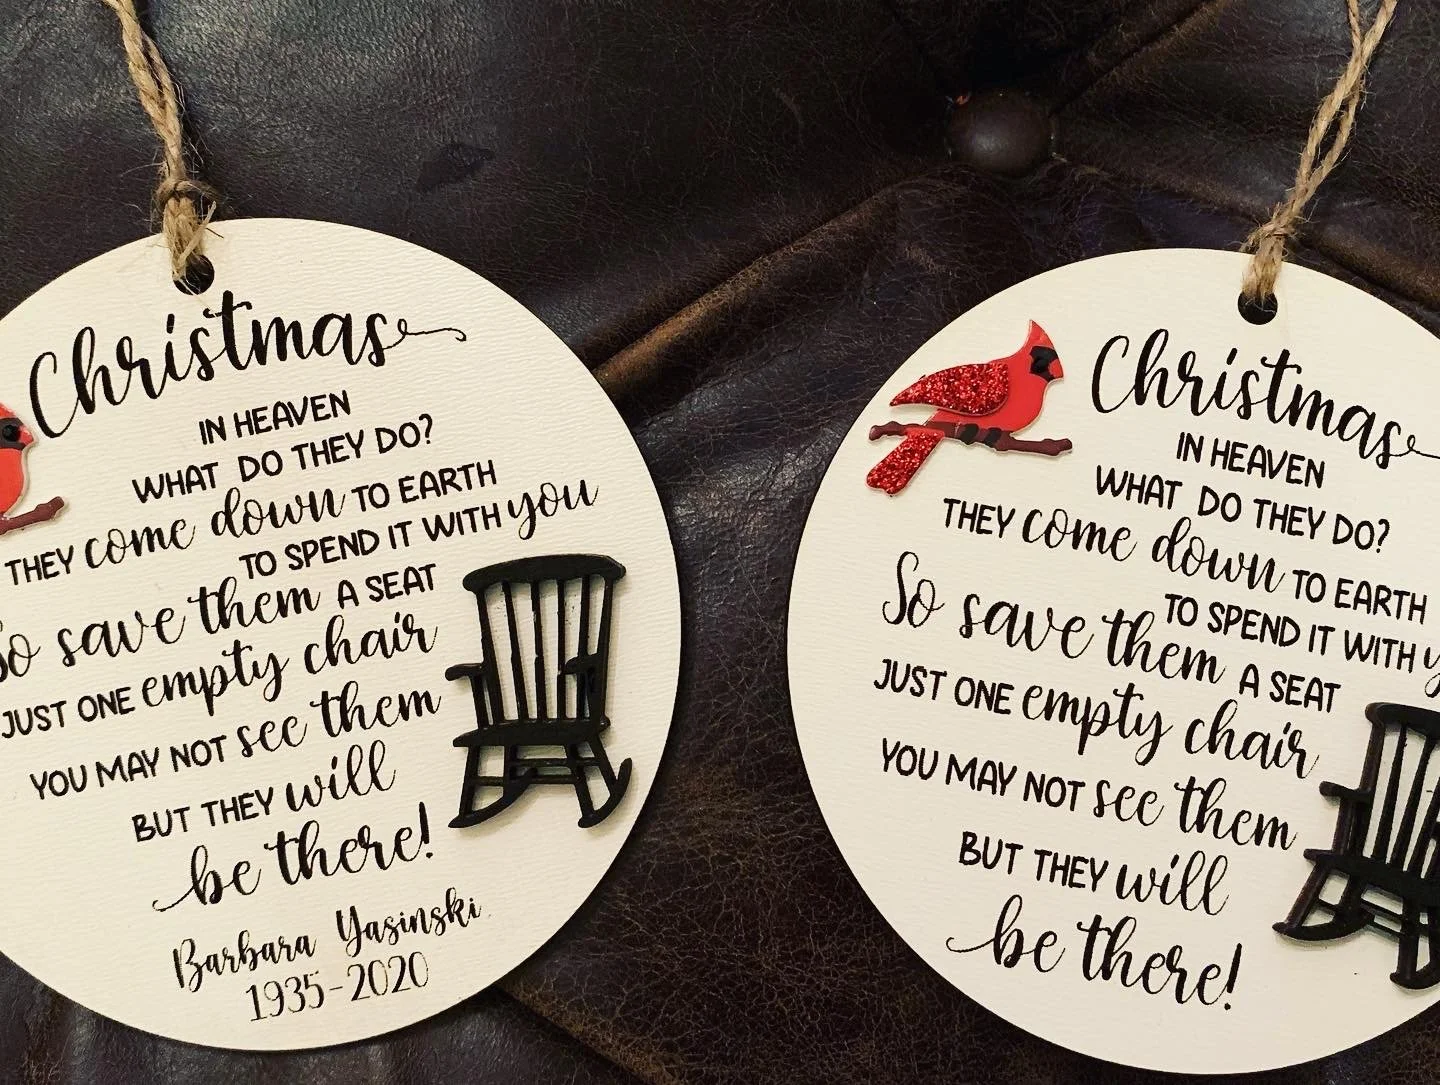 Christmas
IN HEAVEN
WHAT DO THEY DO?
THEY come down TO EARTH
TO SPEND IT WITH you
So save them A SEAT
JUST ONE empty chair
YOU MAY NOT see them
BUT THEY will
be there!
Barbara Yasinski
1935-2020
Christmas
IN HEAVEN
WHAT DO THEY DO?
THEY come down TO EARTH
TO SPEND IT WITH y
So save them A SEAT
JUST ONE empty chair
YOU MAY NOT see them
BUT THEY will
be there!